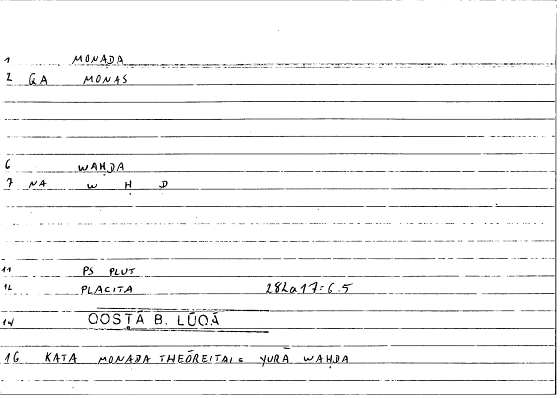 1 MONADA
2 GA MONAS
6 WAḤDA
7 NA W Ḥ D
11 PS PLUT
12 PLACITA 282a17=6.5
14 QOSṬĀ B. LŪQĀ
16 KATA MONADA THEŌREITAI = YURĀ WAḤDA